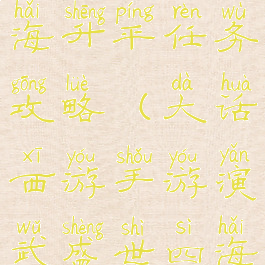 hǎi shēng píng rèn wù
海升平任务
gōng lüè dà huà
攻略（大话
xī yóu shǒu yóu yǎn
西游手游演
wǔ shèng shì sì hǎi
武盛世四海